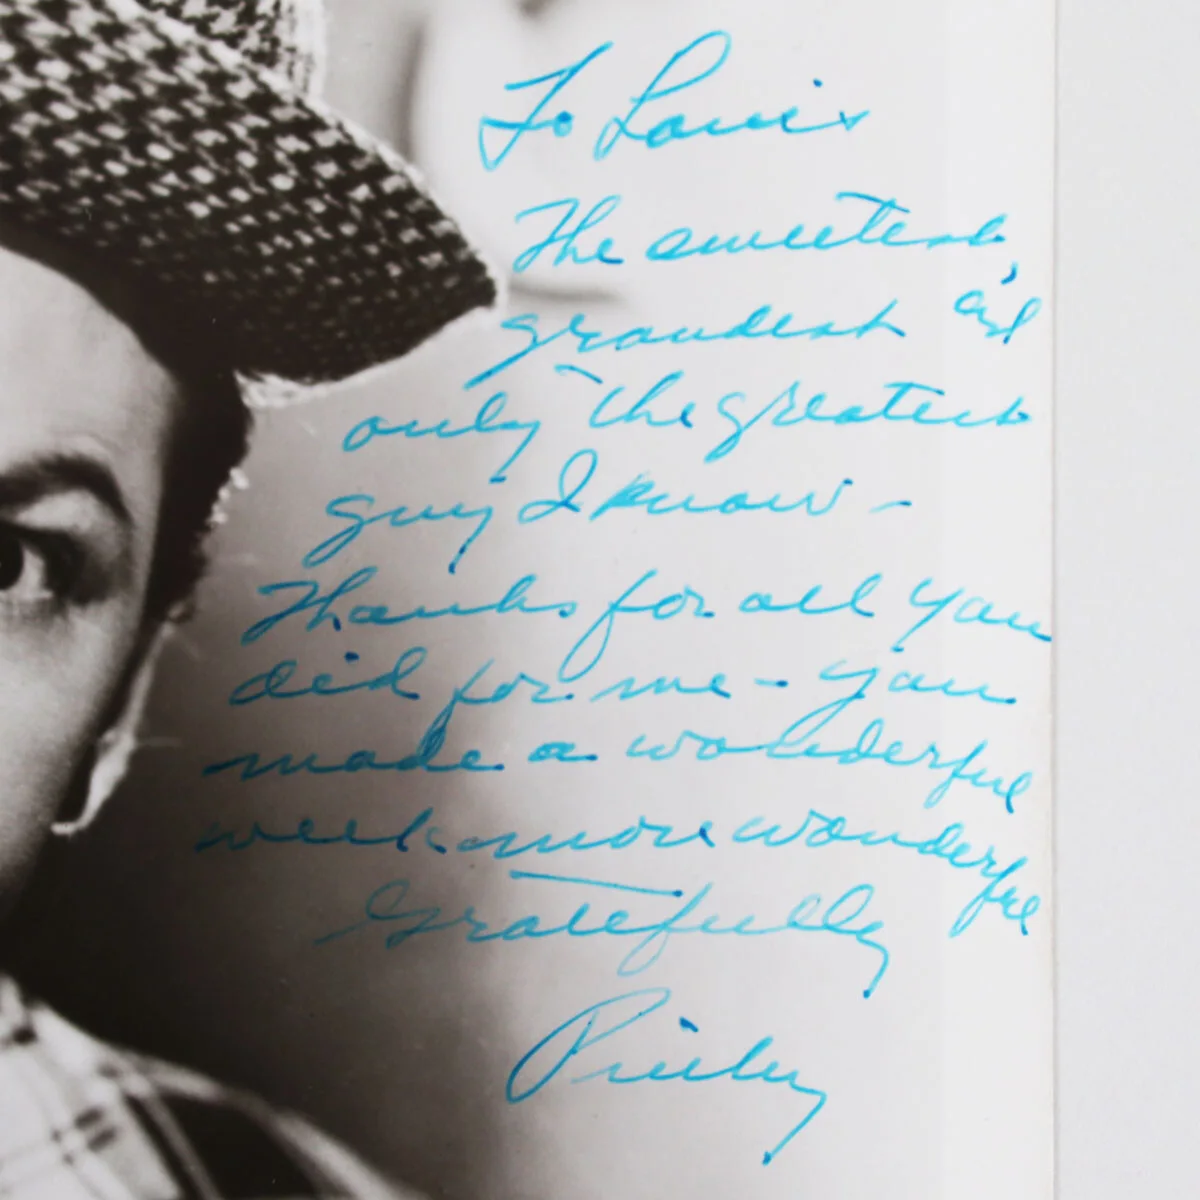 To Louis
The sweetest,
grandest and
only the greatest
guy I know -
Thanks for all you
did for me - you
made a wonderful
week more wonderful
Gratefully
Pinky